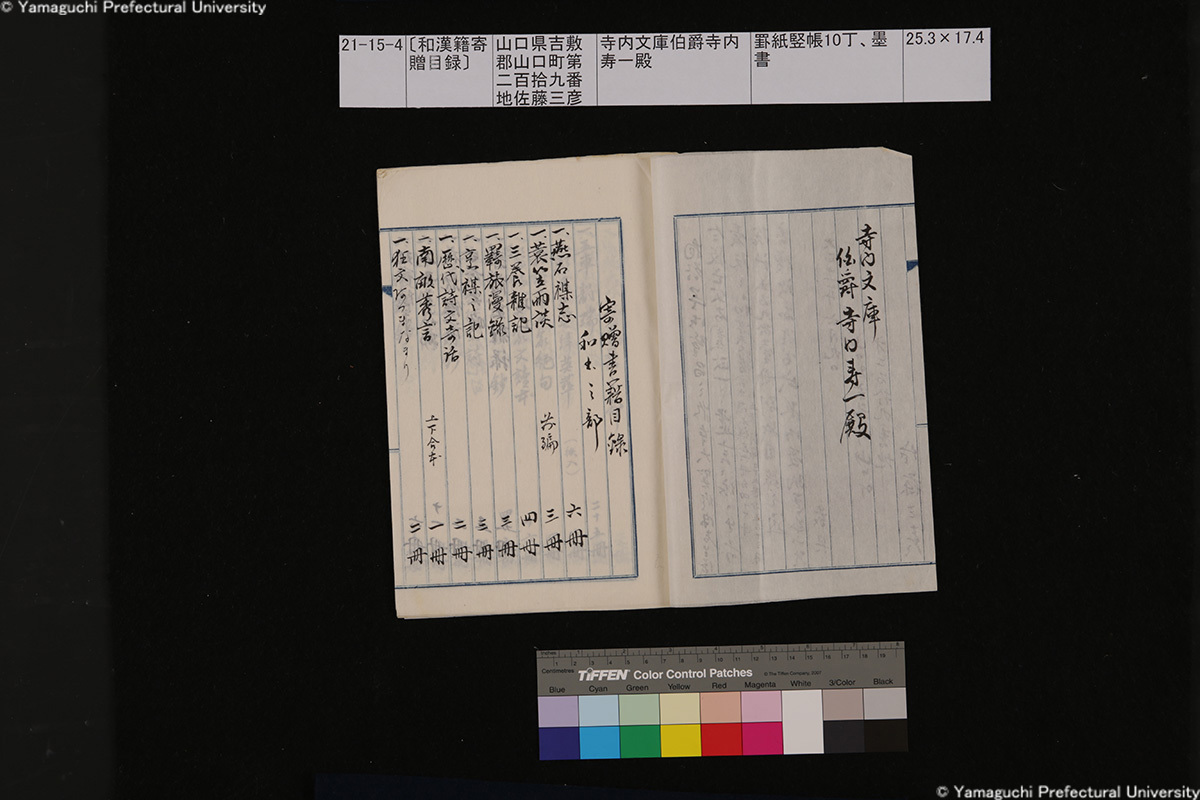 © Yamaguchi Prefectural University
21-15-4
〔和漢籍寄
贈目録〕
山口県吉敷
郡山口町第
二百拾九番
地佐藤三彦
寺内文庫伯爵寺内
寿一殿
罫紙竪帳10丁、墨
書
25.3×17.4
寺内文庫
伯爵寺内寿一殿
寄贈書籍目録
和書之部
一、燕石雑志 六冊
一、蓑笠雨談 前編 三冊
一、三養雑記 四冊
一、羇旅漫録 三冊
一、雑之記 三冊
一、歴代詩文奇話 二冊
一、南畝莠言 上下合本 一冊
一、狂文あつまなまり 二冊
Inches
Centimetres
TIFFEN Color Control Patches
© The Tiffen Company, 2007
Blue Cyan Green Yellow Red Magenta White 3/Color Black
© Yamaguchi Prefectural University